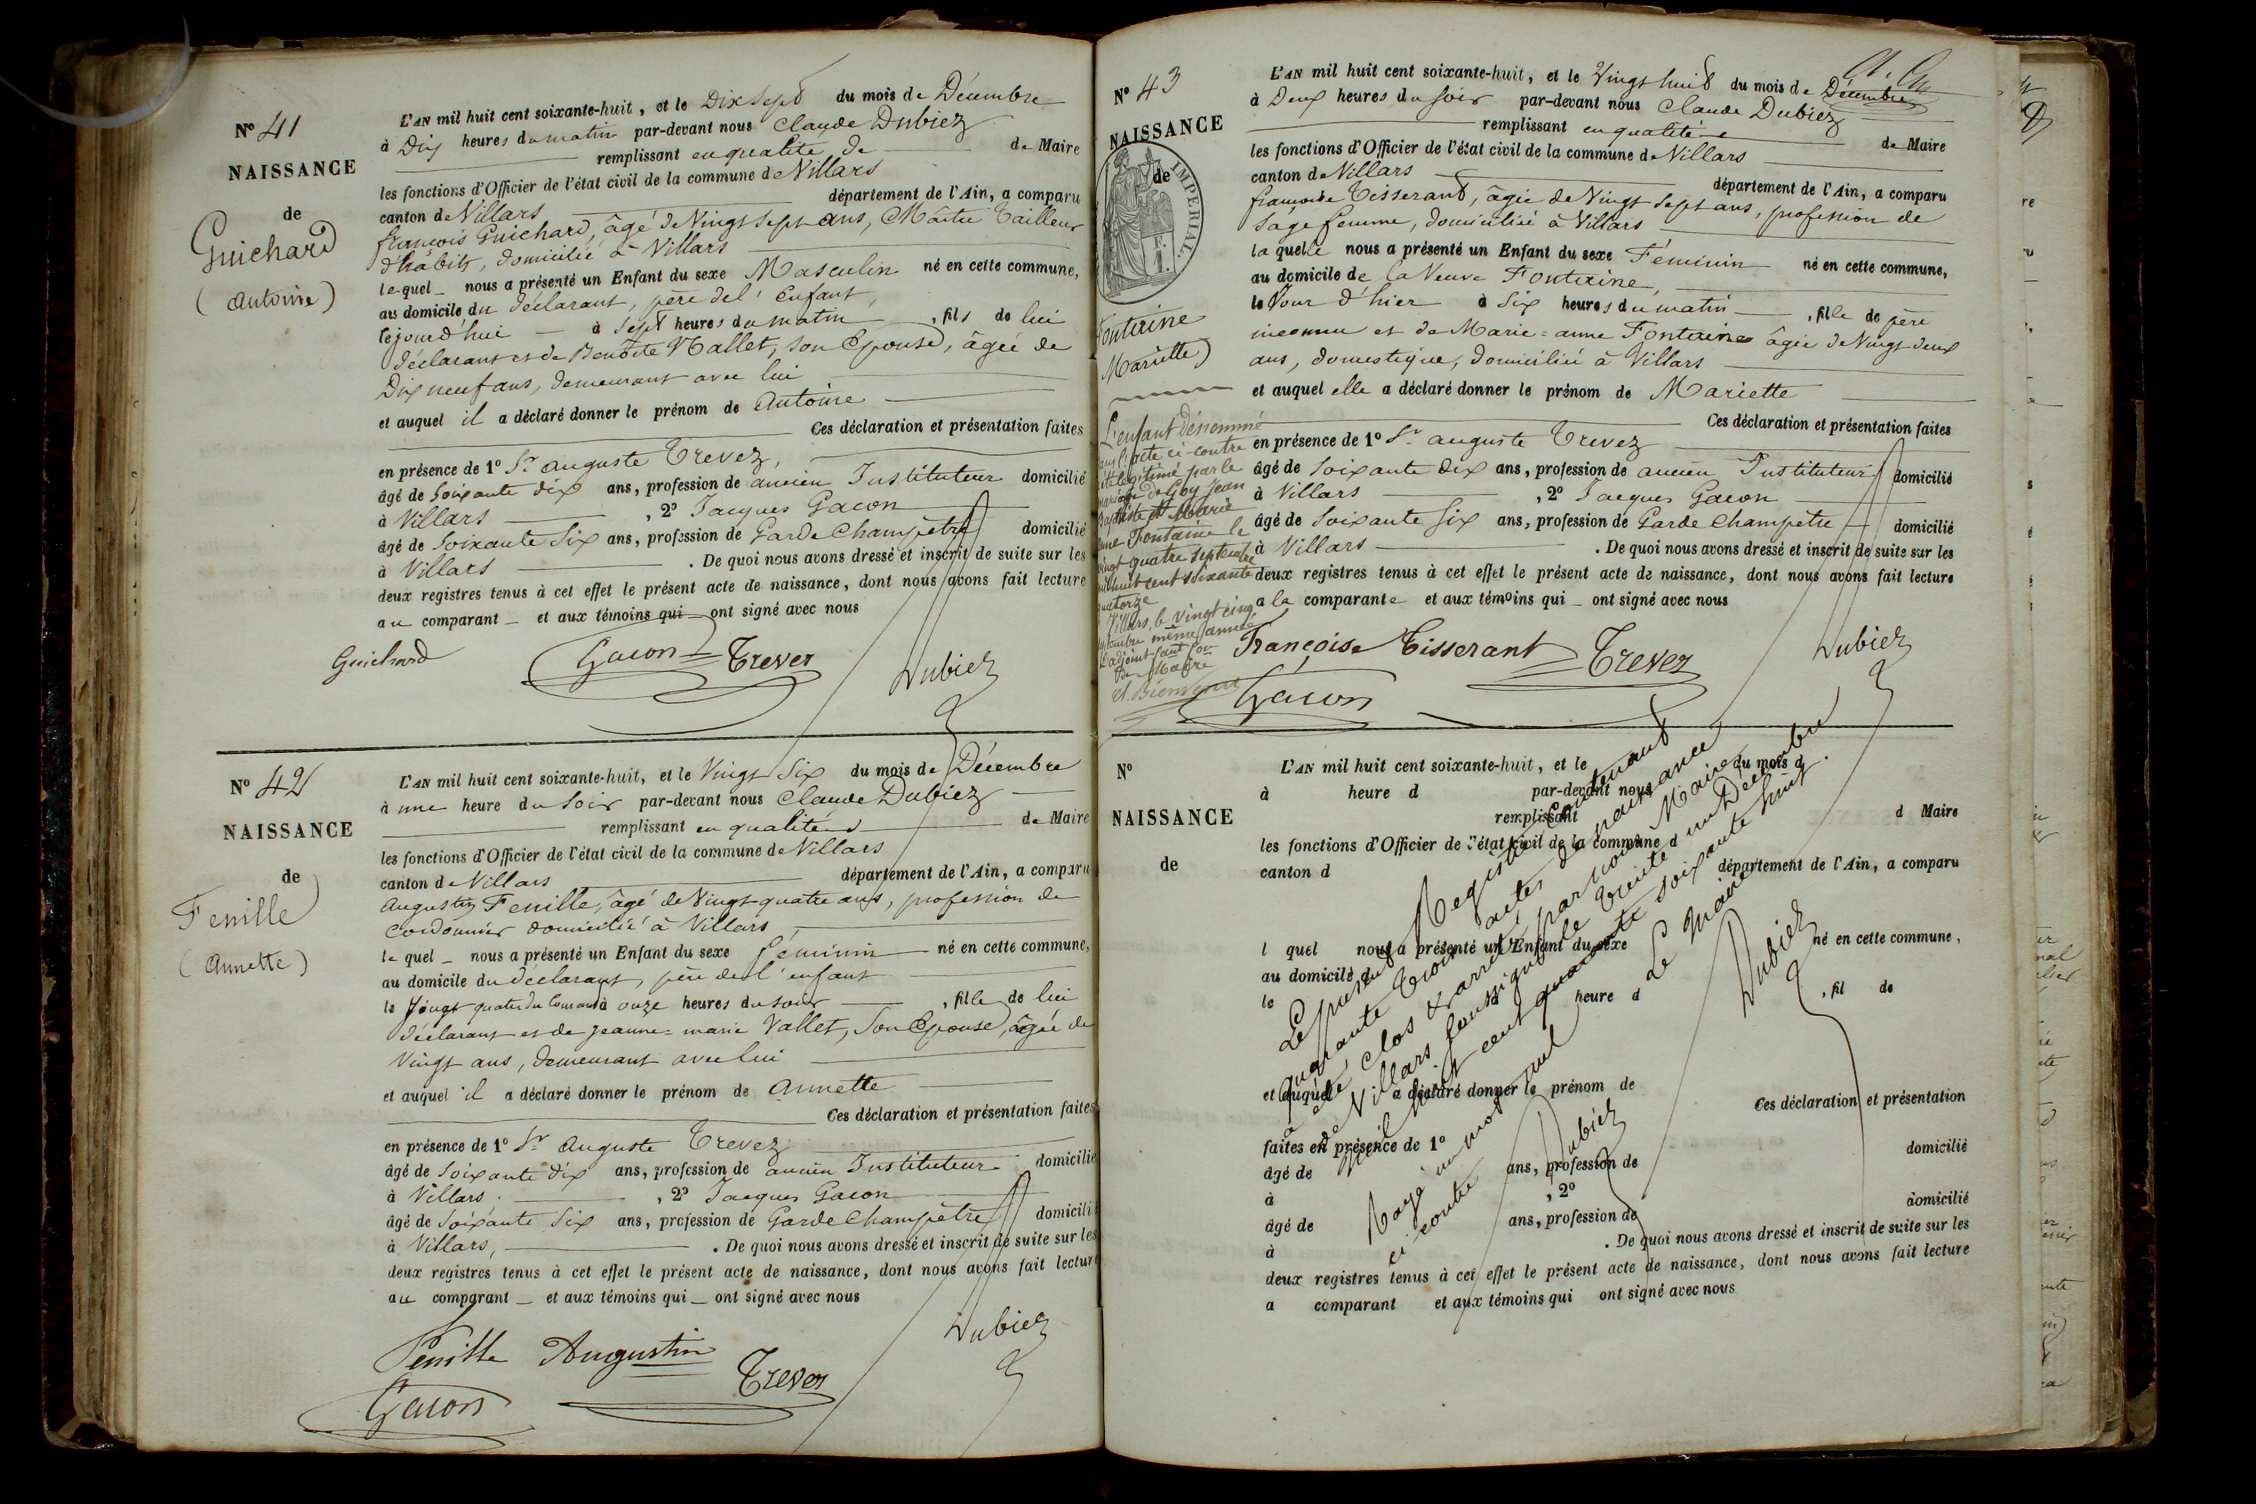 N° 41
NAISSANCE
de
Guichard
(Antoine)
L'AN mil huit cent soixante-huit, et le Dix Sept du mois de Décembre
à Dix heures du matin par-devant nous Claude Dubiez
remplissant en qualité de de Maire
les fonctions d'Officier de l'état civil de la commune de Villars
canton de Villars département de l'Ain, a comparu
françois Guichard, âgé de Vingt Sept ans, Maître Tailleur
d'habits, domicilié à Villars
lequel nous a présenté un Enfant du sexe Masculin né en cette commune,
au domicile du déclarant, père de l'Enfant,
le jourd'hui à Sept heures du matin, fils de lui
déclarant et de Benoîte Mallet, son Epouse, âgée de
Dix neuf ans, demeurant avec lui
et auquel il a déclaré donner le prénom de Antoine
Ces déclaration et présentation faites
en présence de 1° Sr auguste Trevez,
âgé de Soixante dix ans, profession de ancien Instituteur domicilié
à Villars, 2° Jacques Gacon
âgé de Soixante Six ans, profession de Garde Champêtre domicilié
à Villars. De quoi nous avons dressé et inscrit de suite sur les
deux registres tenus à cet effet le présent acte de naissance, dont nous avons fait lecture
au comparant et aux témoins qui ont signé avec nous
Guichard Gacon Trevez Dubiez
N° 42
NAISSANCE
de
Fenille
(Annette)
L'AN mil huit cent soixante-huit, et le Vingt Six du mois de Décembre
à une heure du Soir par-devant nous Claude Dubiez
remplissant en qualité de Maire
les fonctions d'Officier de l'état civil de la commune de Villars
canton de Villars département de l'Ain, a comparu
Augustin Fenille, âgé de Vingt quatre ans, profession de
Cordonnier domicilié à Villars,
le quel nous a présenté un Enfant du sexe féminin né en cette commune,
au domicile du déclarant, père de l'enfant
le Vingt quatre du Courant à onze heures du soir, fille de lui
déclarant et de Jeanne=marie Vallet, Son Epouse, âgée de
Vingt ans, demeurant avec lui
et auquel il a déclaré donner le prénom de annette
Ces déclaration et présentation faites
en présence de 1° Sr Auguste Trevez
âgé de Soixante dix ans, profession de ancien Instituteur domicilié
à Villars, 2° Jacques Gacon
âgé de Soixante Six ans, profession de Garde Champêtre domicilié
à Villars, . De quoi nous avons dressé et inscrit de suite sur les
deux registres tenus à cet effet le présent acte de naissance, dont nous avons fait lecture
au comparant et aux témoins qui ont signé avec nous
Fenille Augustin Trevez Dubiez
Gacon
N° 43
NAISSANCE
de
IMPERIAL.
Fontaine
Mariette)
L'enfant dénommé
dans l'acte ci-contre
a été légitimé par le
mariage de Goy Jean
Baptiste et Marie
anne Fontaine le
vingt quatre septembre
mil huit cent soixante
quatorze
Villars, le vingt cinq
septembre même année
L'adjoint faisant fon
de Maire
L'AN mil huit cent soixante-huit, et le Vingt huit du mois de Décembre
à Deux heures du soir par-devant nous Claude Dubiez
remplissant en qualité de Maire
les fonctions d'Officier de l'état civil de la commune de Villars
canton de Villars département de l'Ain, a comparu
françoise Tisserant, âgée de Vingt Sept ans, profession de
Sage femme, domiciliée à Villars
la quelle nous a présenté un Enfant du sexe Féminin né en cette commune,
au domicile de la Veuve Fontaine,
le Jour d'hier à Six heures du matin, fille de père
inconnu et de Marie=anne Fontaine âgée de Vingt deux
ans, domestique, domiciliée à Villars
et auquel elle a déclaré donner le prénom de Mariette
Ces déclaration et présentation faites
en présence de 1° Sr auguste Trevez
âgé de Soixante dix ans, profession de ancien Instituteur domicilié
à Villars, 2° Jacques Gacon
âgé de Soixante Six ans, profession de Garde Champêtre domicilié
à Villars. De quoi nous avons dressé et inscrit de suite sur les
deux registres tenus à cet effet le présent acte de naissance, dont nous avons fait lecture
a la comparante et aux témoins qui ont signé avec nous
Françoise Tisserant Trevez Dubiez
Gacon
N°
NAISSANCE
de
L'AN mil huit cent soixante-huit, et le du mois d
à heure d par-devant nous
remplissant d Maire
les fonctions d'Officier de l'état civil de la commune d
canton d département de l'Ain, a comparu
l quel nous a présenté un Enfant du sexe né en cette commune,
au domicile d
le heure d, fil de
et auquel a déclaré donner le prénom de
Ces déclaration et présentation
faites en présence de 1°
âgé de ans, profession de domicilié
à, 2°
âgé de ans, profession de domicilié
à. De quoi nous avons dressé et inscrit de suite sur les
deux registres tenus à cet effet le présent acte de naissance, dont nous avons fait lecture
a comparant et aux témoins qui ont signé avec nous
Le présent Registre Contenant
quarante trois actes de naissance
a été clos & arrêté par nous Maire
de Villars soussigné le trente un Décembre
mil huit cent quarante soixante huit.
Le Maire
Dubiez
Rayé un mot nul
ci contre
Dubiez